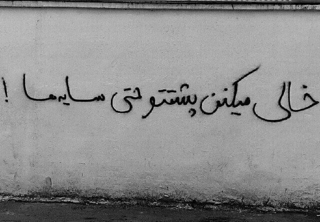 خالی میکنن پشتتو حتی سایه ها !